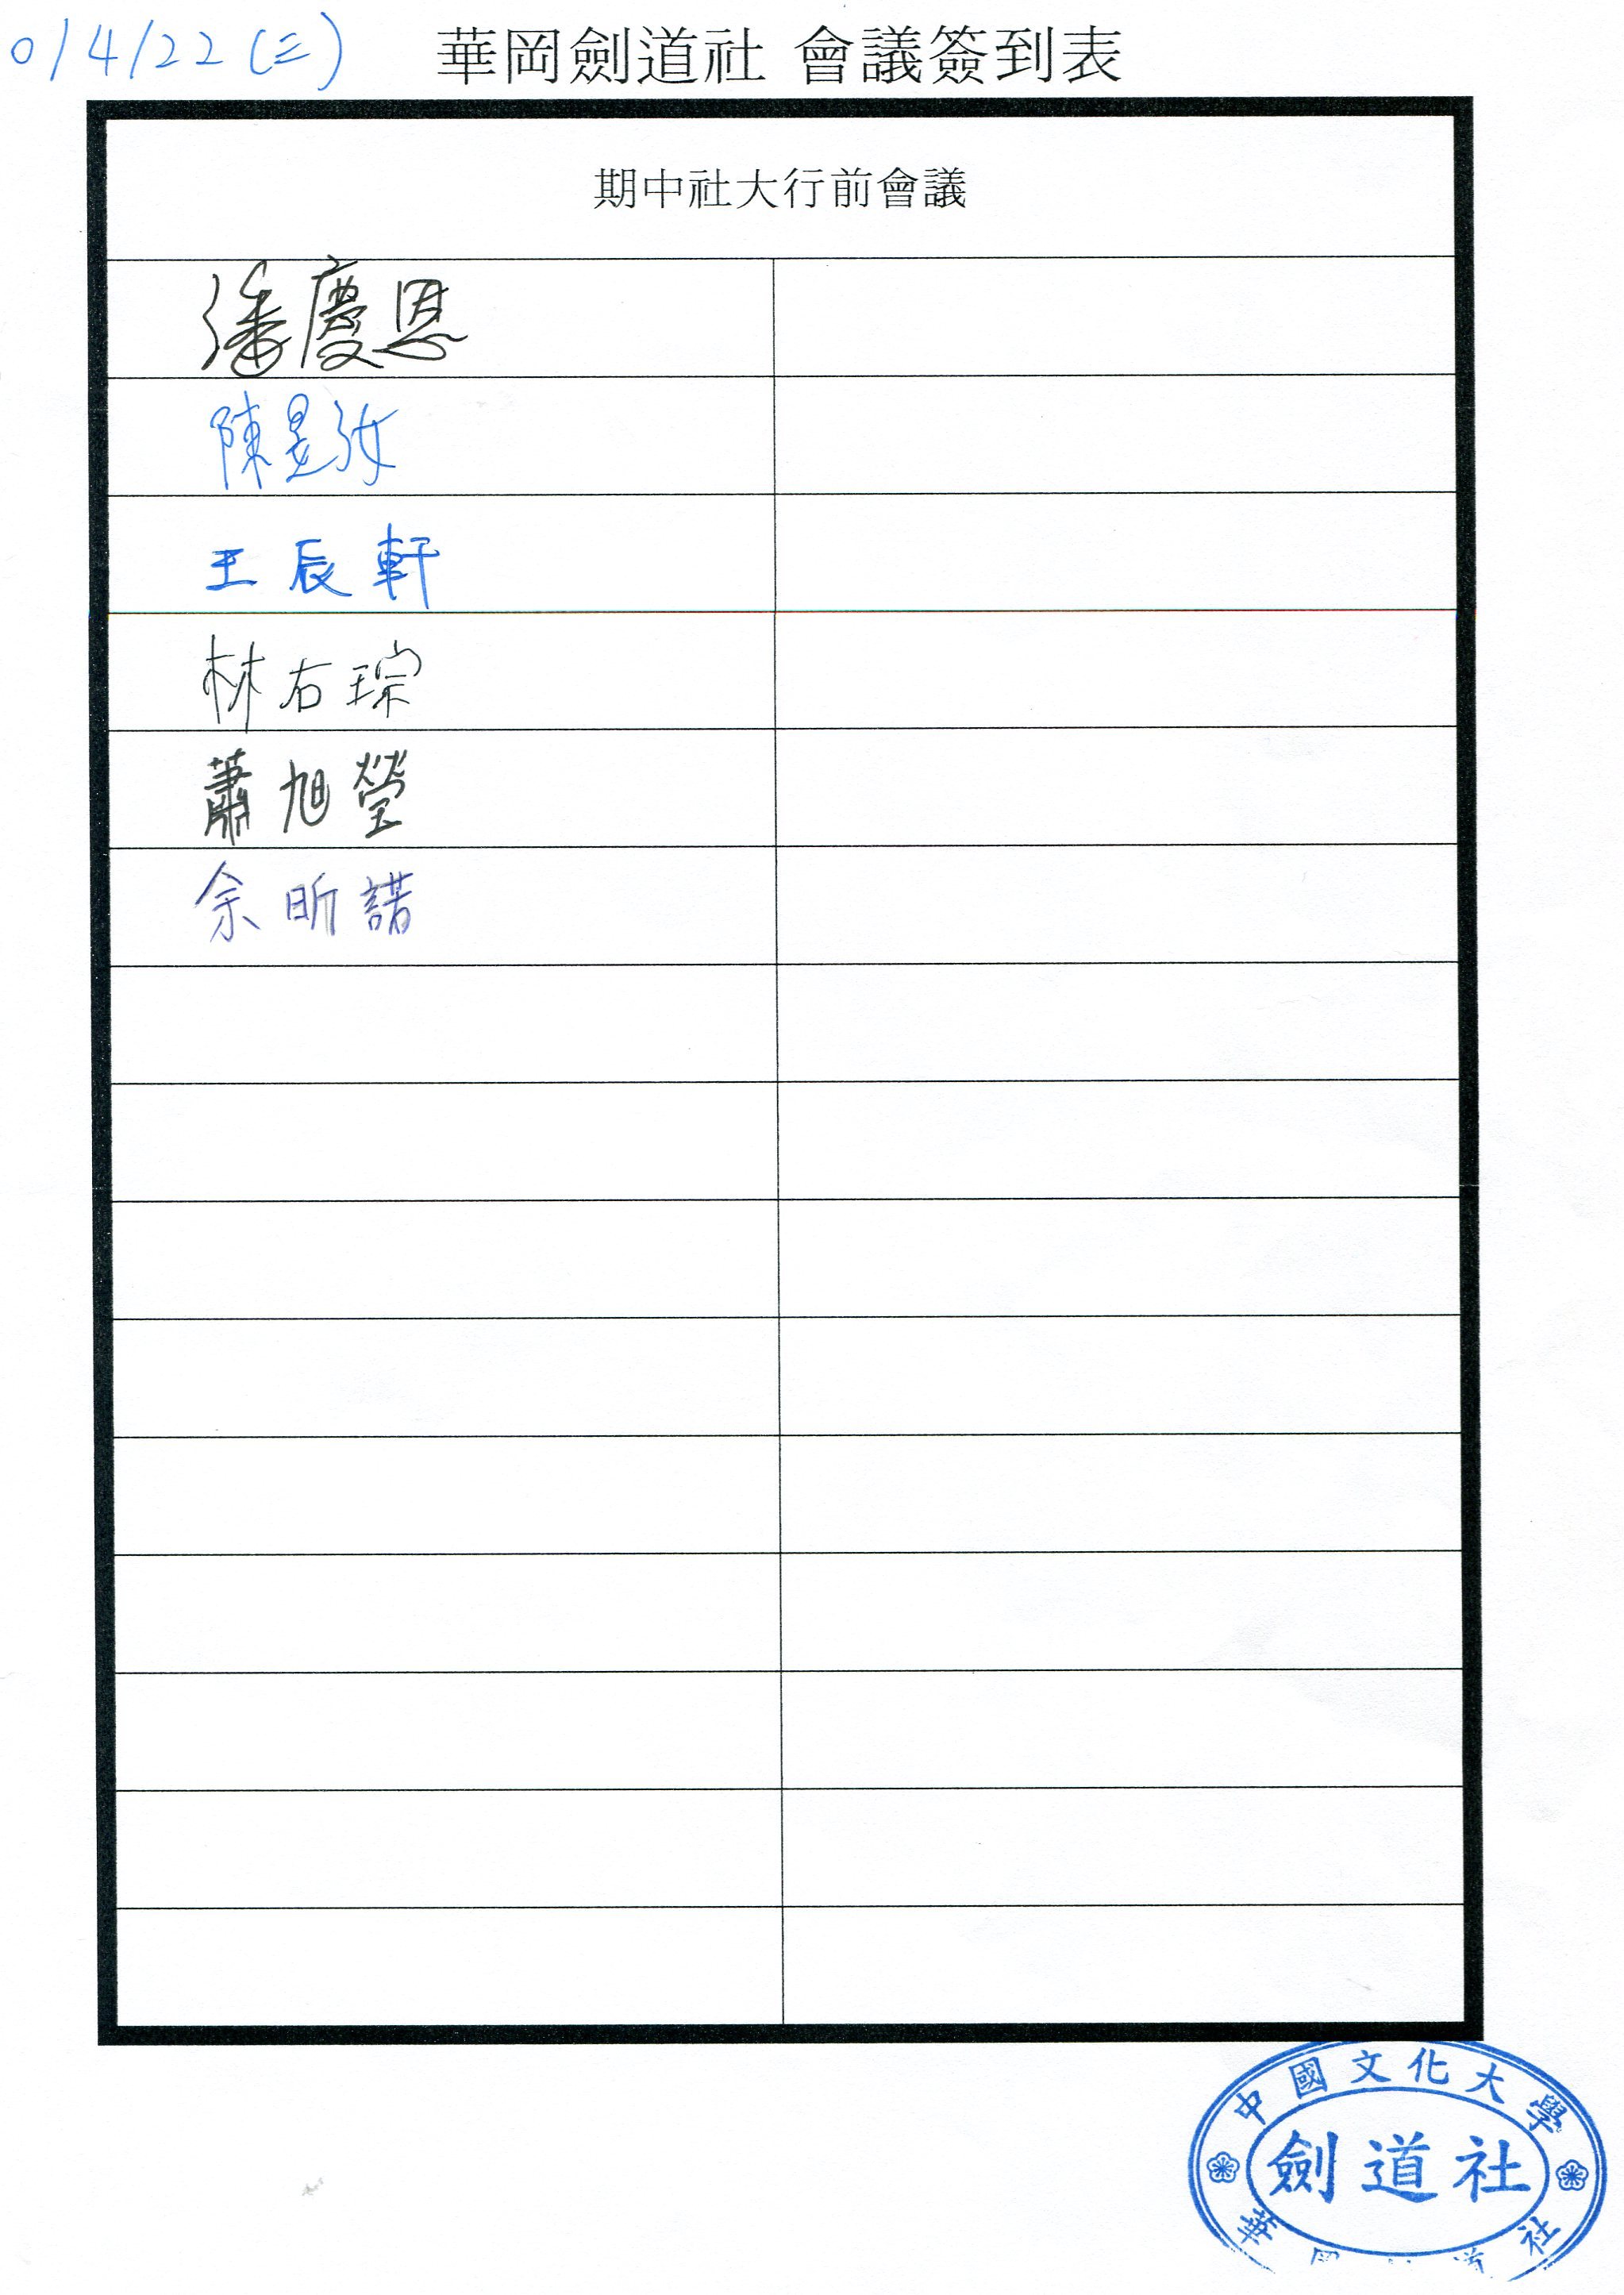 0/4/22(三)
華岡劍道社 會議簽到表
期中社大行前會議
潘慶恩
陳昱汝
王辰軒
林右琮
蕭旭瑩
余昕諾
中國文化大學
劍道社
華岡 道社